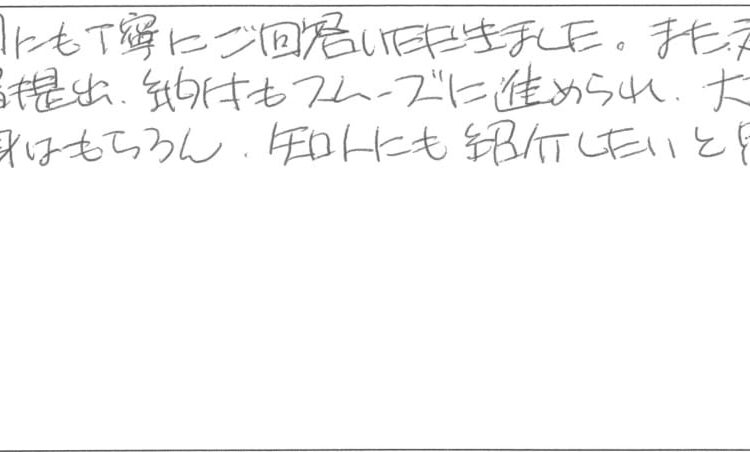 にも丁寧にご回答いただきました。また、
提出、納付もスムーズに進められ、大
身はもちろん、知人にも紹介したいと